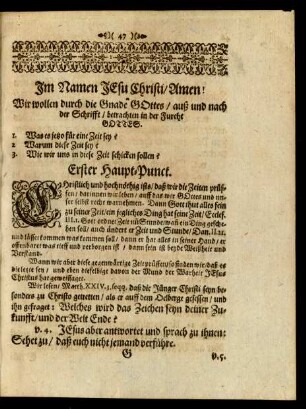 47
Im Namen JEsu Christi / Amen!
Wir wollen durch die Gnade GOttes / auß und nach
der Schrifft / betrachten in der Furcht
GOTTES.
1. Was es jetzo für eine Zeit sey?
2. Warum diese Zeit sey?
3. Wie wir uns in diese Zeit schicken sollen?
Erster Haupt-Punct.
CHristlich und hochnöthig ists / daß wir die Zeiten prüf-
fen / darinnen wir leben / auff das wir GOttes und un-
ser selbst recht warnehmen. Dann Gott thut alles fein
zu seiner Zeit / ein jegliches Ding hat seine Zeit / Eccles.
III.1. Gott ordnet Zeit und Stunde / wann ein Ding gesche-
hen soll / auch ändert er Zeit und Stunde / Dan. II.21.
und lässet kommen was kommen soll / dann er hat alles in seiner Hand / er
offenbaret was tieff und verborgen ist / dann sein ist beyde Weißheit und
Verstand.
Wann wir aber diese gegenwärtige Zeit prüfen / so finden wir / daß es
die letzte sey / und eben dieselbige davon der Mund der Warheit JEsus
Christus hat geweissaget.
Wir lesen / Matth. XXIV.3. seqq. daß die Jünger Christi seyn be-
sonders zu Christo getretten / als er auff dem Oelberge gesessen / und
ihn gefraget: Welches wird das Zeichen seyn deiner Zu-
kunfft / und der Welt Ende?
v. 4. JEsus aber antwortet und sprach zu ihnen:
Sehet zu / daß euch nicht jemand verführe.
G
v.5.